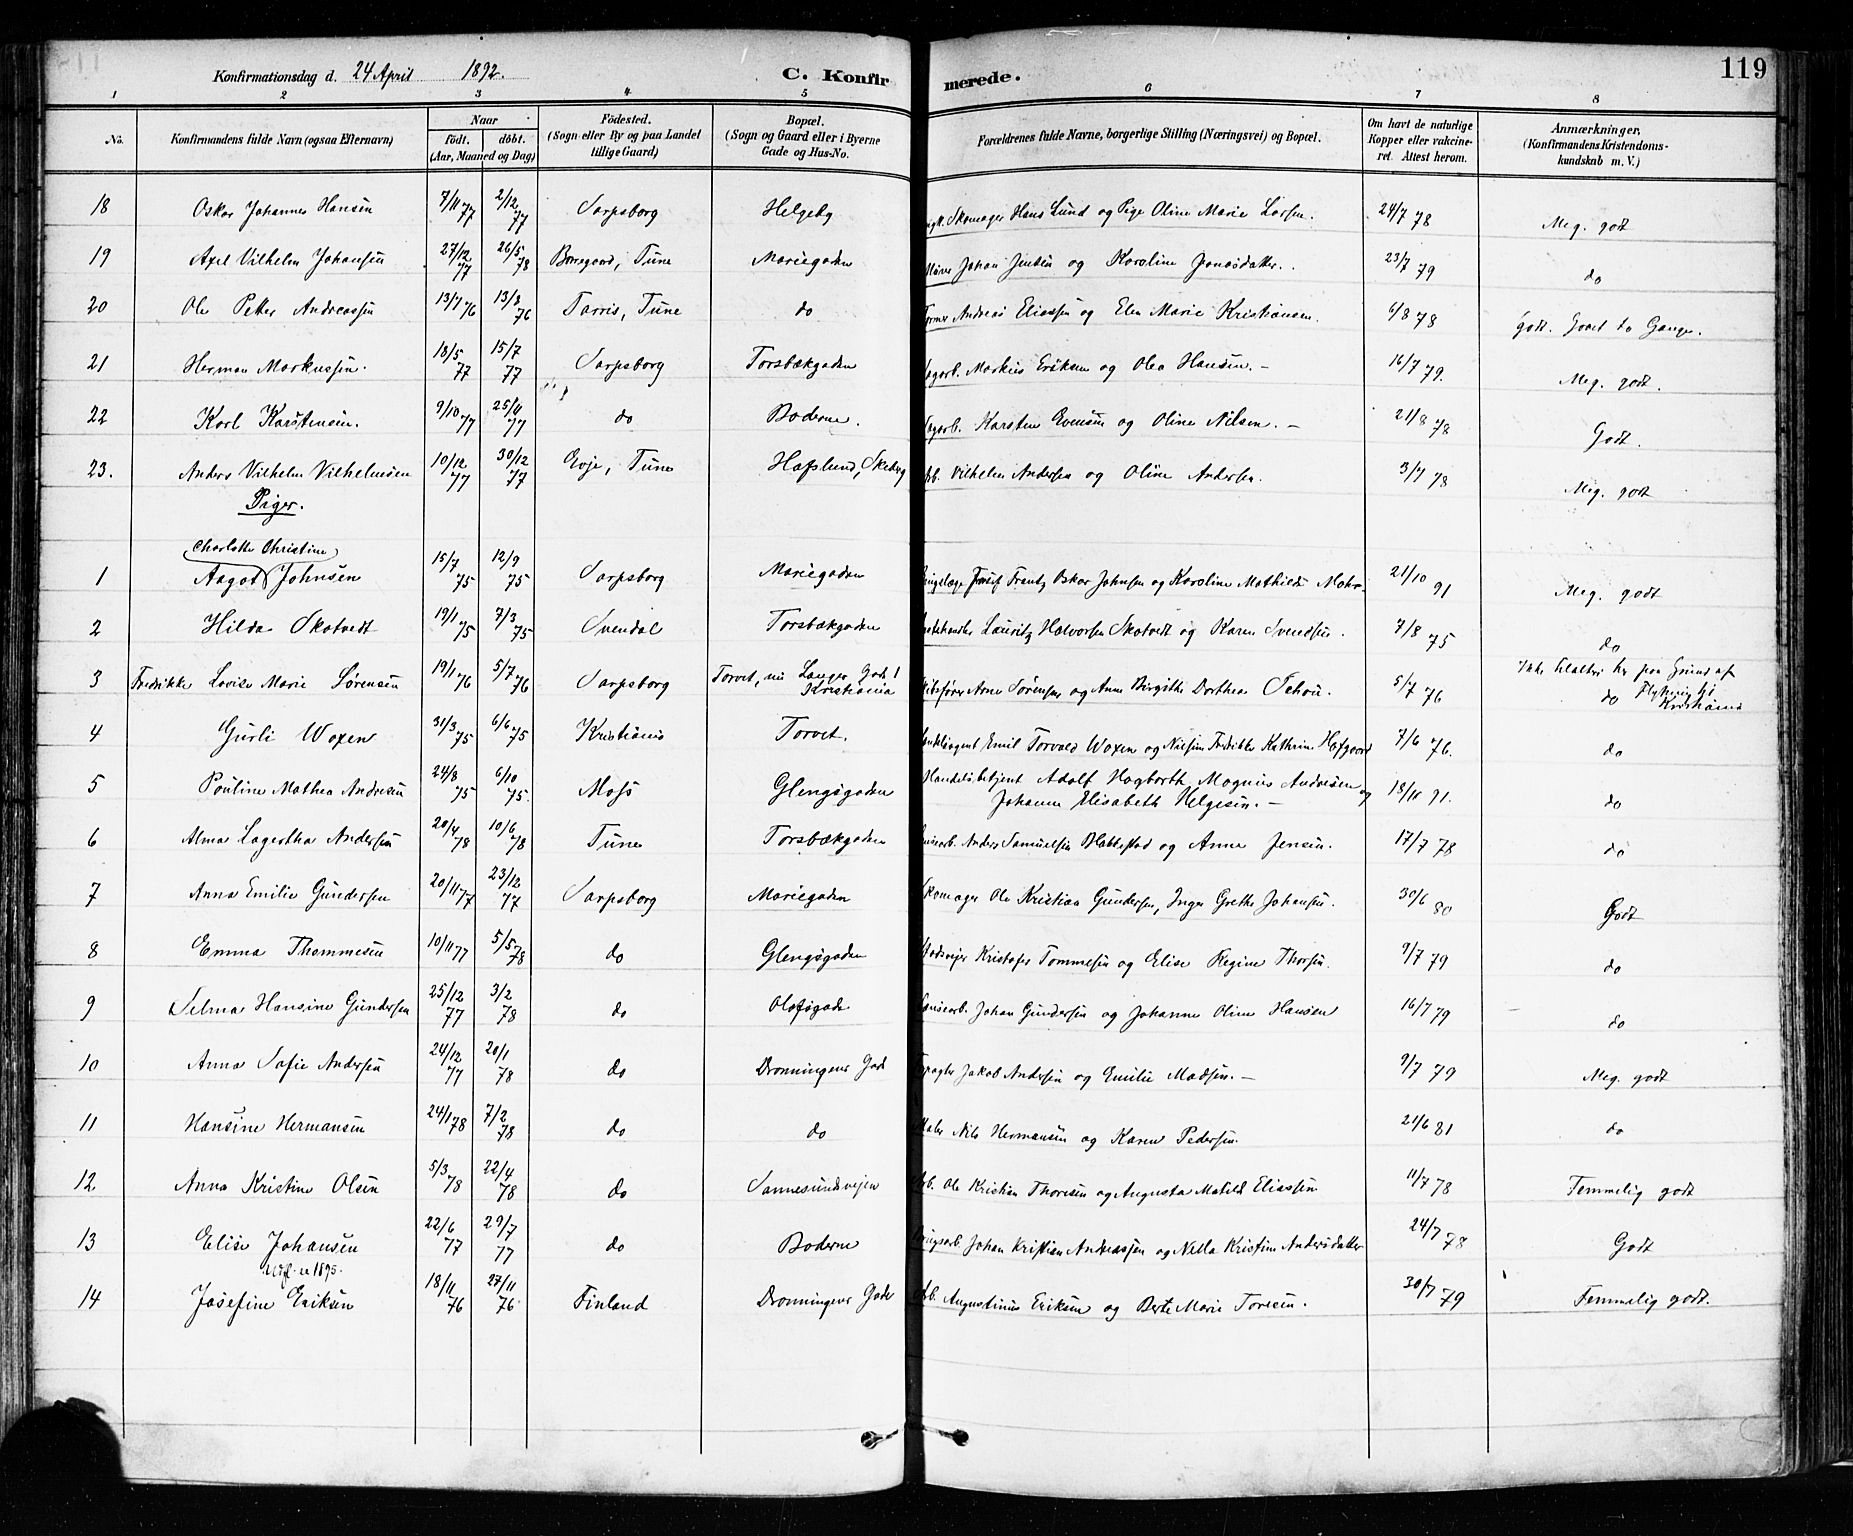 119
Konfirmationsdag d. 24 April 1892. C. Konfirmerede.
1 2 3 4 5 6 7 8
No. Konfirmandens fulde Navn (ogsaa Efternavn) Naar født. døbt. (Aar, Maaned og Dag) Fødested. (Sogn eller By og paa Landet tillige Gaard) Bopæl. (Sogn og Gaard eller i Byerne Gade og Hus-No. Forældrenes fulde Navne, borgerlige Stilling (Næringsvei) og Bopæl. Om havt de naturlige Kopper eller vakcineret. Attest herom. Anmærkninger. (Konfirmandens Kristendomskundskab m. V.)
18 Oskar Johannes Hansen 7/11 77 2/12 77 Sarpsborg Helgeby Skomager Hans Lund og Pige Oline Marie Larsen. 24/7 78 Meg. godt
19 Axel Vilhelm Johansen 27/12 77 26/5 78 Borregaard, Tune Mariegaden Johan Jensen og Karoline Jonasdatter. 23/7 79 do
20 Ole Petter Andreassen 13/7 76 13/8 76 Tarris, Tune do Andreas Eliassen og Elen Marie Kristiansen. 6/8 78 godt. to Gange.
21 Herman Markussen. 18/5 77 15/7 77 Sarpsborg Torsbækgaden Markus Eriksen og Olea Hansen. – 16/7 79. Meg. godt.
22 Karl Karstensen. 9/10 77 25/11 77 do Boderne. Karsten Evensen og Oline Nilsen. – 21/8 78 Godt.
23. Anders Vilhelm Vilhelmsen 10/12 77 30/12 77 Evje, Tune Hafslund, Skeberg Arb. Vilhelm Andersen og Oline Andersen. 3/7 78 Meg. godt
Piger.
Charlotte Christine
1 Aagot Johnsen 15/7 75 12/9 75 Sarpsborg Mariegaden Frantz Oskar Johnsen og Karoline Mathilde Mohr. 21/10 91 Meg. godt
2 Hilda Skotvedt 19/1 75 7/3 75 Svendal Torsbækgaden Lauritz Halvorsen Skotvedt og Karen Svendsen. 7/8 75 do
3 Fredrikke Lovise Marie Sørensen 19/1 76 5/7 76 Sarpsborg Torvet, nu Langes Gade 1 Kristiania Skibsfører Arne Sørensen og Anne Birgitte Dorthea Schou. 5/7 76 Ikke tilalters her paa Grund af Flytning til Kristiania do
4 Gurli Woxen 31/3 75 6/6 75 Kristiania Torvet. Emil Torvald Woxen og Nielsine Fredrikke Kathrine Hofgaard 7/6 76. do
5 Pauline Mathea Andresen 24/8 75 6/10 75. Moss Glengsgaden Handelsbetjent Adolf Hagbarth Magnus Andresen og Johanne Elisabeth Helgesen. – 18/11 91. do
6 Alma Lagertha Andersen 20/4 78 10/6 78 Tune Torsbækgaden Anders Samuelsen Blakkestad og Anne Jensen. 17/7 78 do
7 Anna Emilie Gundersen 20/11 77 23/12 77 Sarpsborg Mariegaden Skomager Ole Kristian Gundersen, Inger Grethe Johansen. 30/6 80 Godt
8 Emma Thommesen 10/11 77 5/5 78 do Glengsgaden Kristofer Tommesen og Elise Regine Thorsen. 9/7 79 do
9 Selma Hansine Gundersen 25/12 77 3/2 78 do Olafsgade Johan Gundersen og Johanne Oline Hansen 16/7 79 do
10 Anna Sofie Andersen 24/12 77 20/1 78 do Dronningens Gade Jakob Andersen og Emilie Madsen. – 9/7 79 Meg. godt
11 Hansine Hermansen 24/1 78 7/2 78 do do Maler Nils Hermansen og Karen Pedersen. 21/6 81 do
12 Anna Kristine Olsen 5/3 78 22/4 78 do Sannesundsvejen Arb. Ole Kristian Thoresen og Augusta Matilde Eliassen 11/7 78 Temmelig godt
13 Elise Johansen 22/6 77 29/7 77 do Boderne Johan Kristian Andreassen og Nella Kristine Andersdatter 24/7 78 Godt
Udfl. 1895.
14 Josefine Eriksen 18/11 76 27/11 76. Finland Dronningens Gade Arb. Augustinus Eriksen og Berte Marie Toresen. 30/7 79 Temmelig godt.